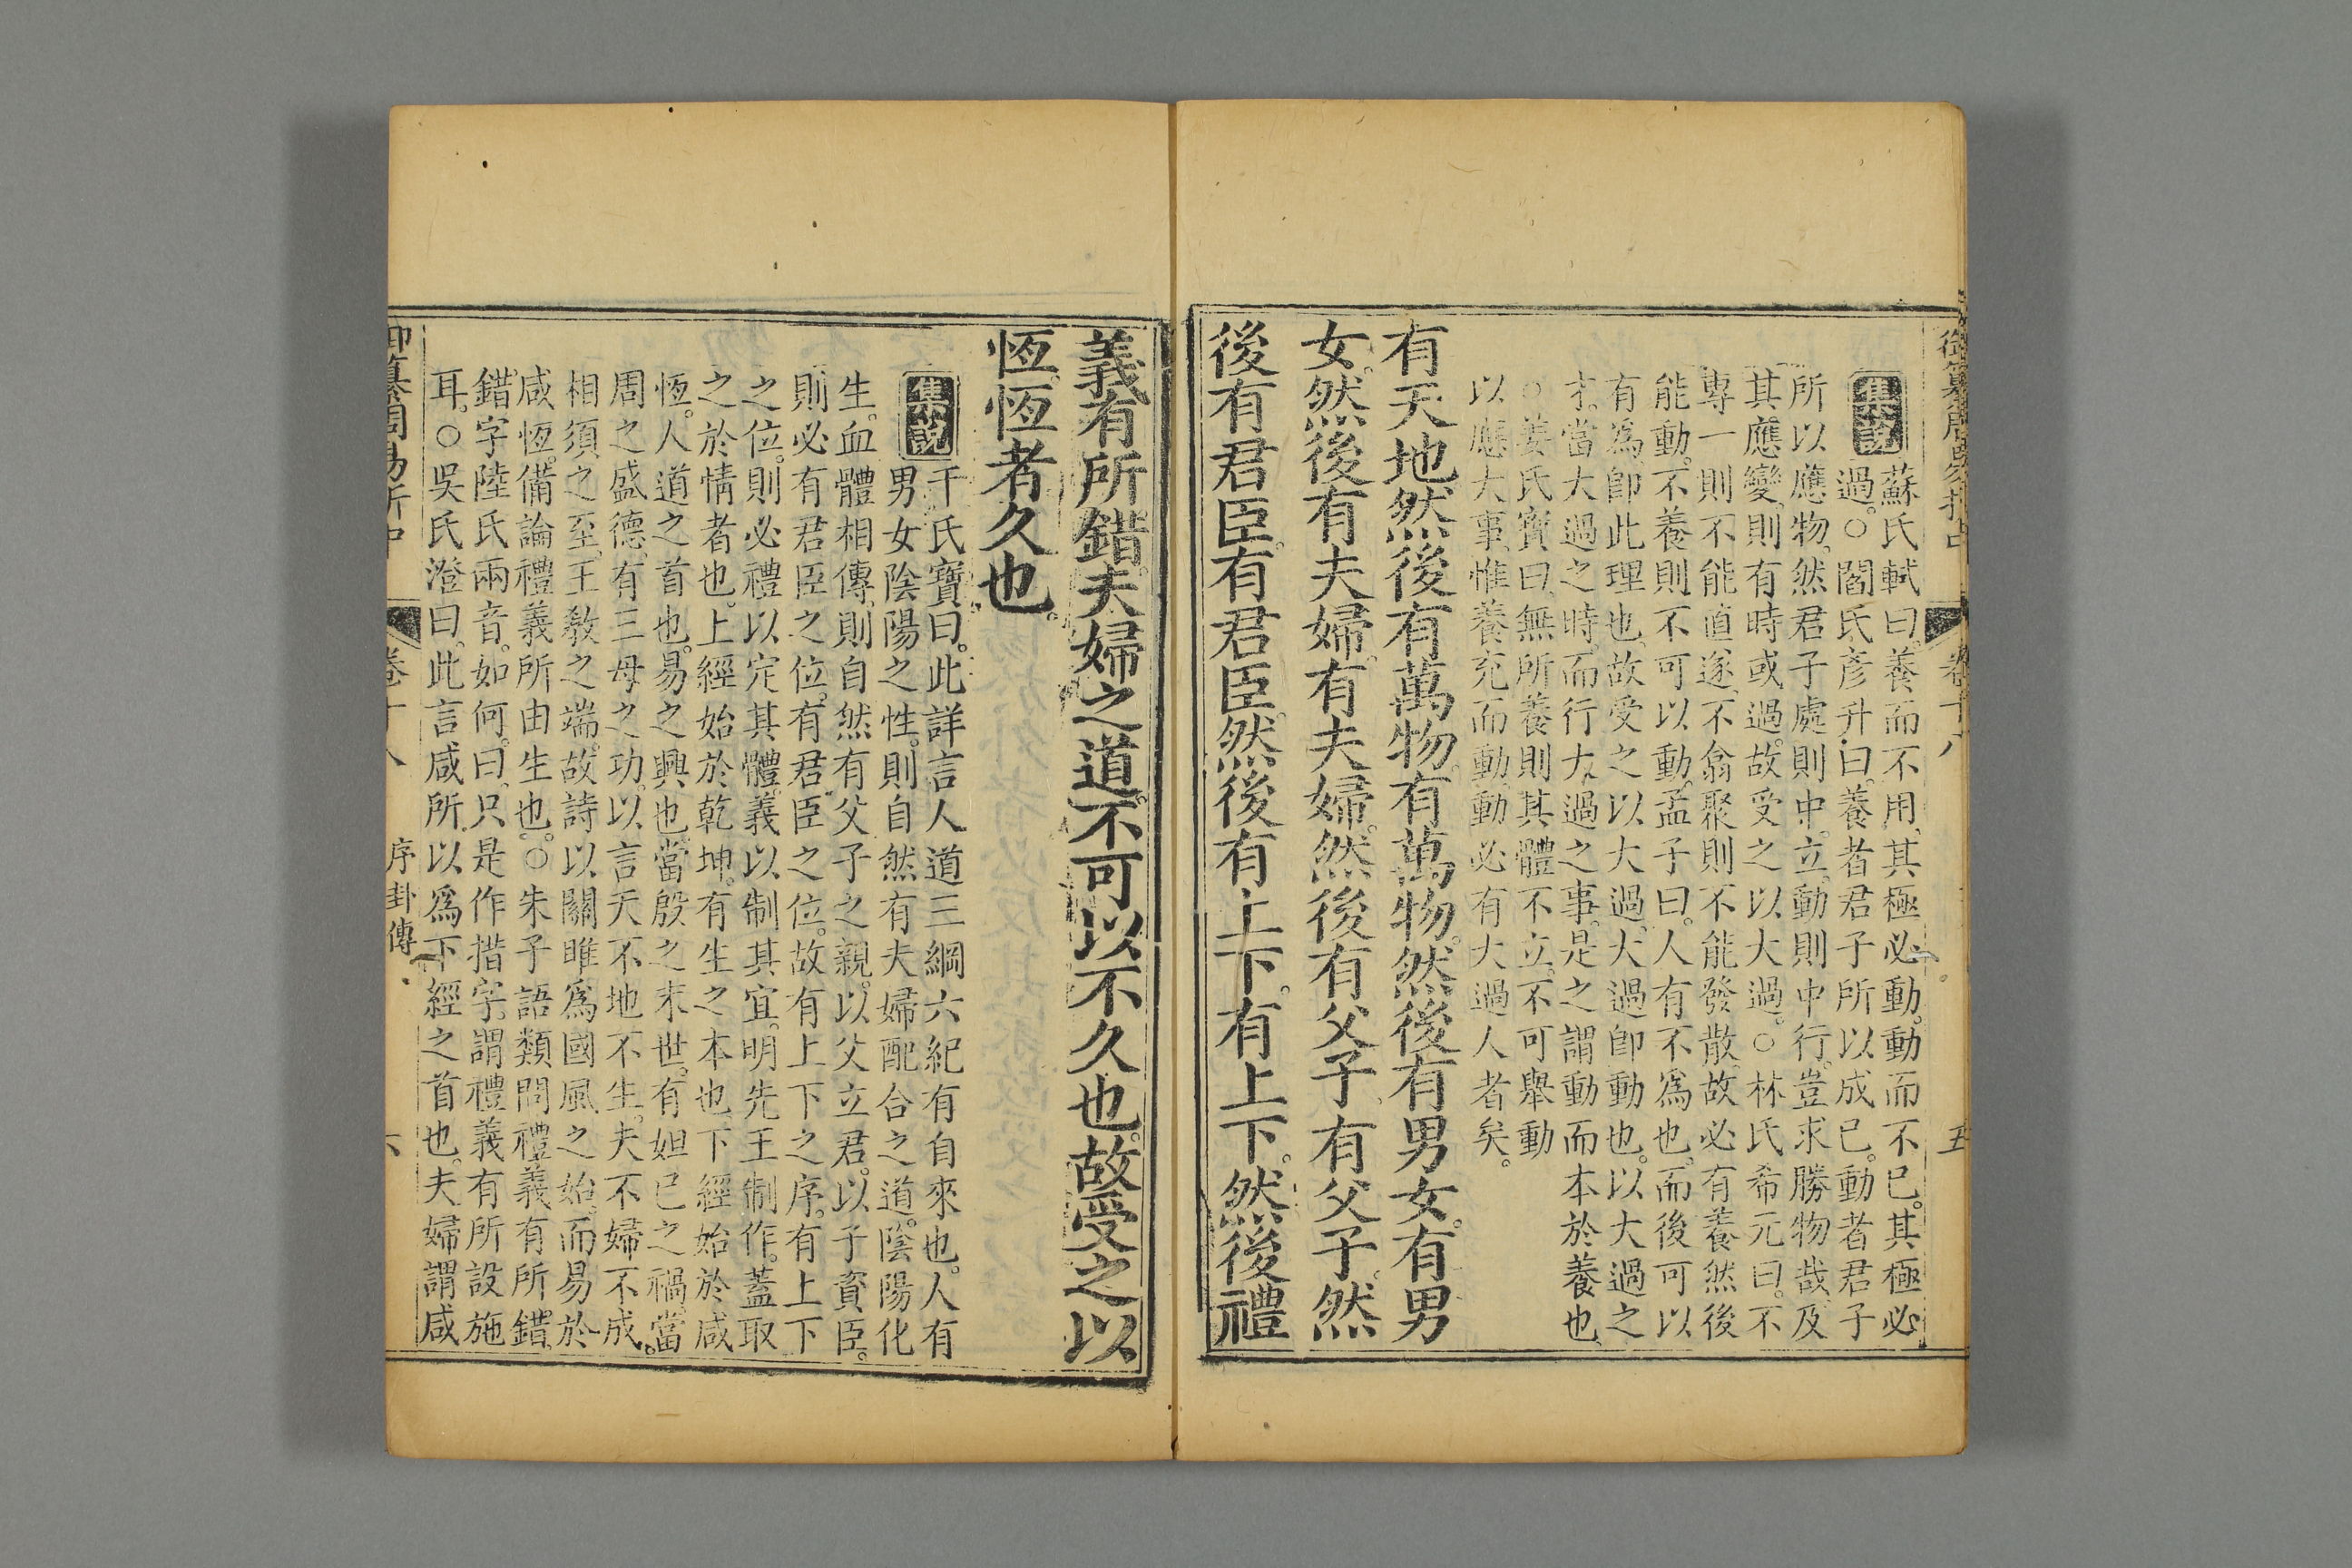 集說
蘇氏軾曰。養而不用、其極必動。動而不已。其極必
過。○閻氏彥升曰。養者君子所以成已。動者君子
所以應物。然君子處則中立。動則中行。豈求勝物哉。及
其應變、則有時或過。故受之以大過。○林氏希元曰。不
專一則不能直遂、不翕聚則不能發散。故必有養然後
能動。不養則不可以動。孟子曰。人有不爲也。而後可以
有爲。卽此理也。故受之以大過。大過卽動也。以大過之
才。當大過之時。而行大過之事。是之謂動而本於養也。
○姜氏寶曰。無所養則其體不立。不可舉動
以應大事。惟養充而動。動必有大過人者矣。
有天地然後有萬物。有萬物。然後有男女。有男
女。然後有夫婦。有夫婦。然後有父子。有父子。然
後有君臣。有君臣。然後有上下。有上下。然後禮
卷十八
五
義有所錯。夫婦之道。不可以不久也。故受之以
恆。恆者久也。
集說
干氏寶曰。此詳言人道三綱六紀有自來也。人有
男女陰陽之性。則自然有夫婦配合之道。陰陽化
生。血體相傳。則自然有父子之親。以父立君。以子資臣。
則必有君臣之位。有君臣之位。故有上下之序。有上下
之位。則必禮以定其體。義以制其宜。明先王制作。蓋取
之於情者也。上經始於乾坤。有生之本也。下經始於咸
恆。人道之首也。易之興也。當殷之末世。有妲己之禍。當
周之盛德。有三母之功。以言天不地不生。夫不婦不成。
相須之至。王教之端。故詩以關雎爲國風之始。而易於
咸恆。備論禮義所由生也。○朱子語類問禮義有所錯。
錯字陸氏兩音。如何。曰。只是作措字。謂禮義有所設施
耳。○吳氏澄曰。此言咸所以爲下經之首也。夫婦謂咸
御纂周易折中
卷十八
序卦傳
六